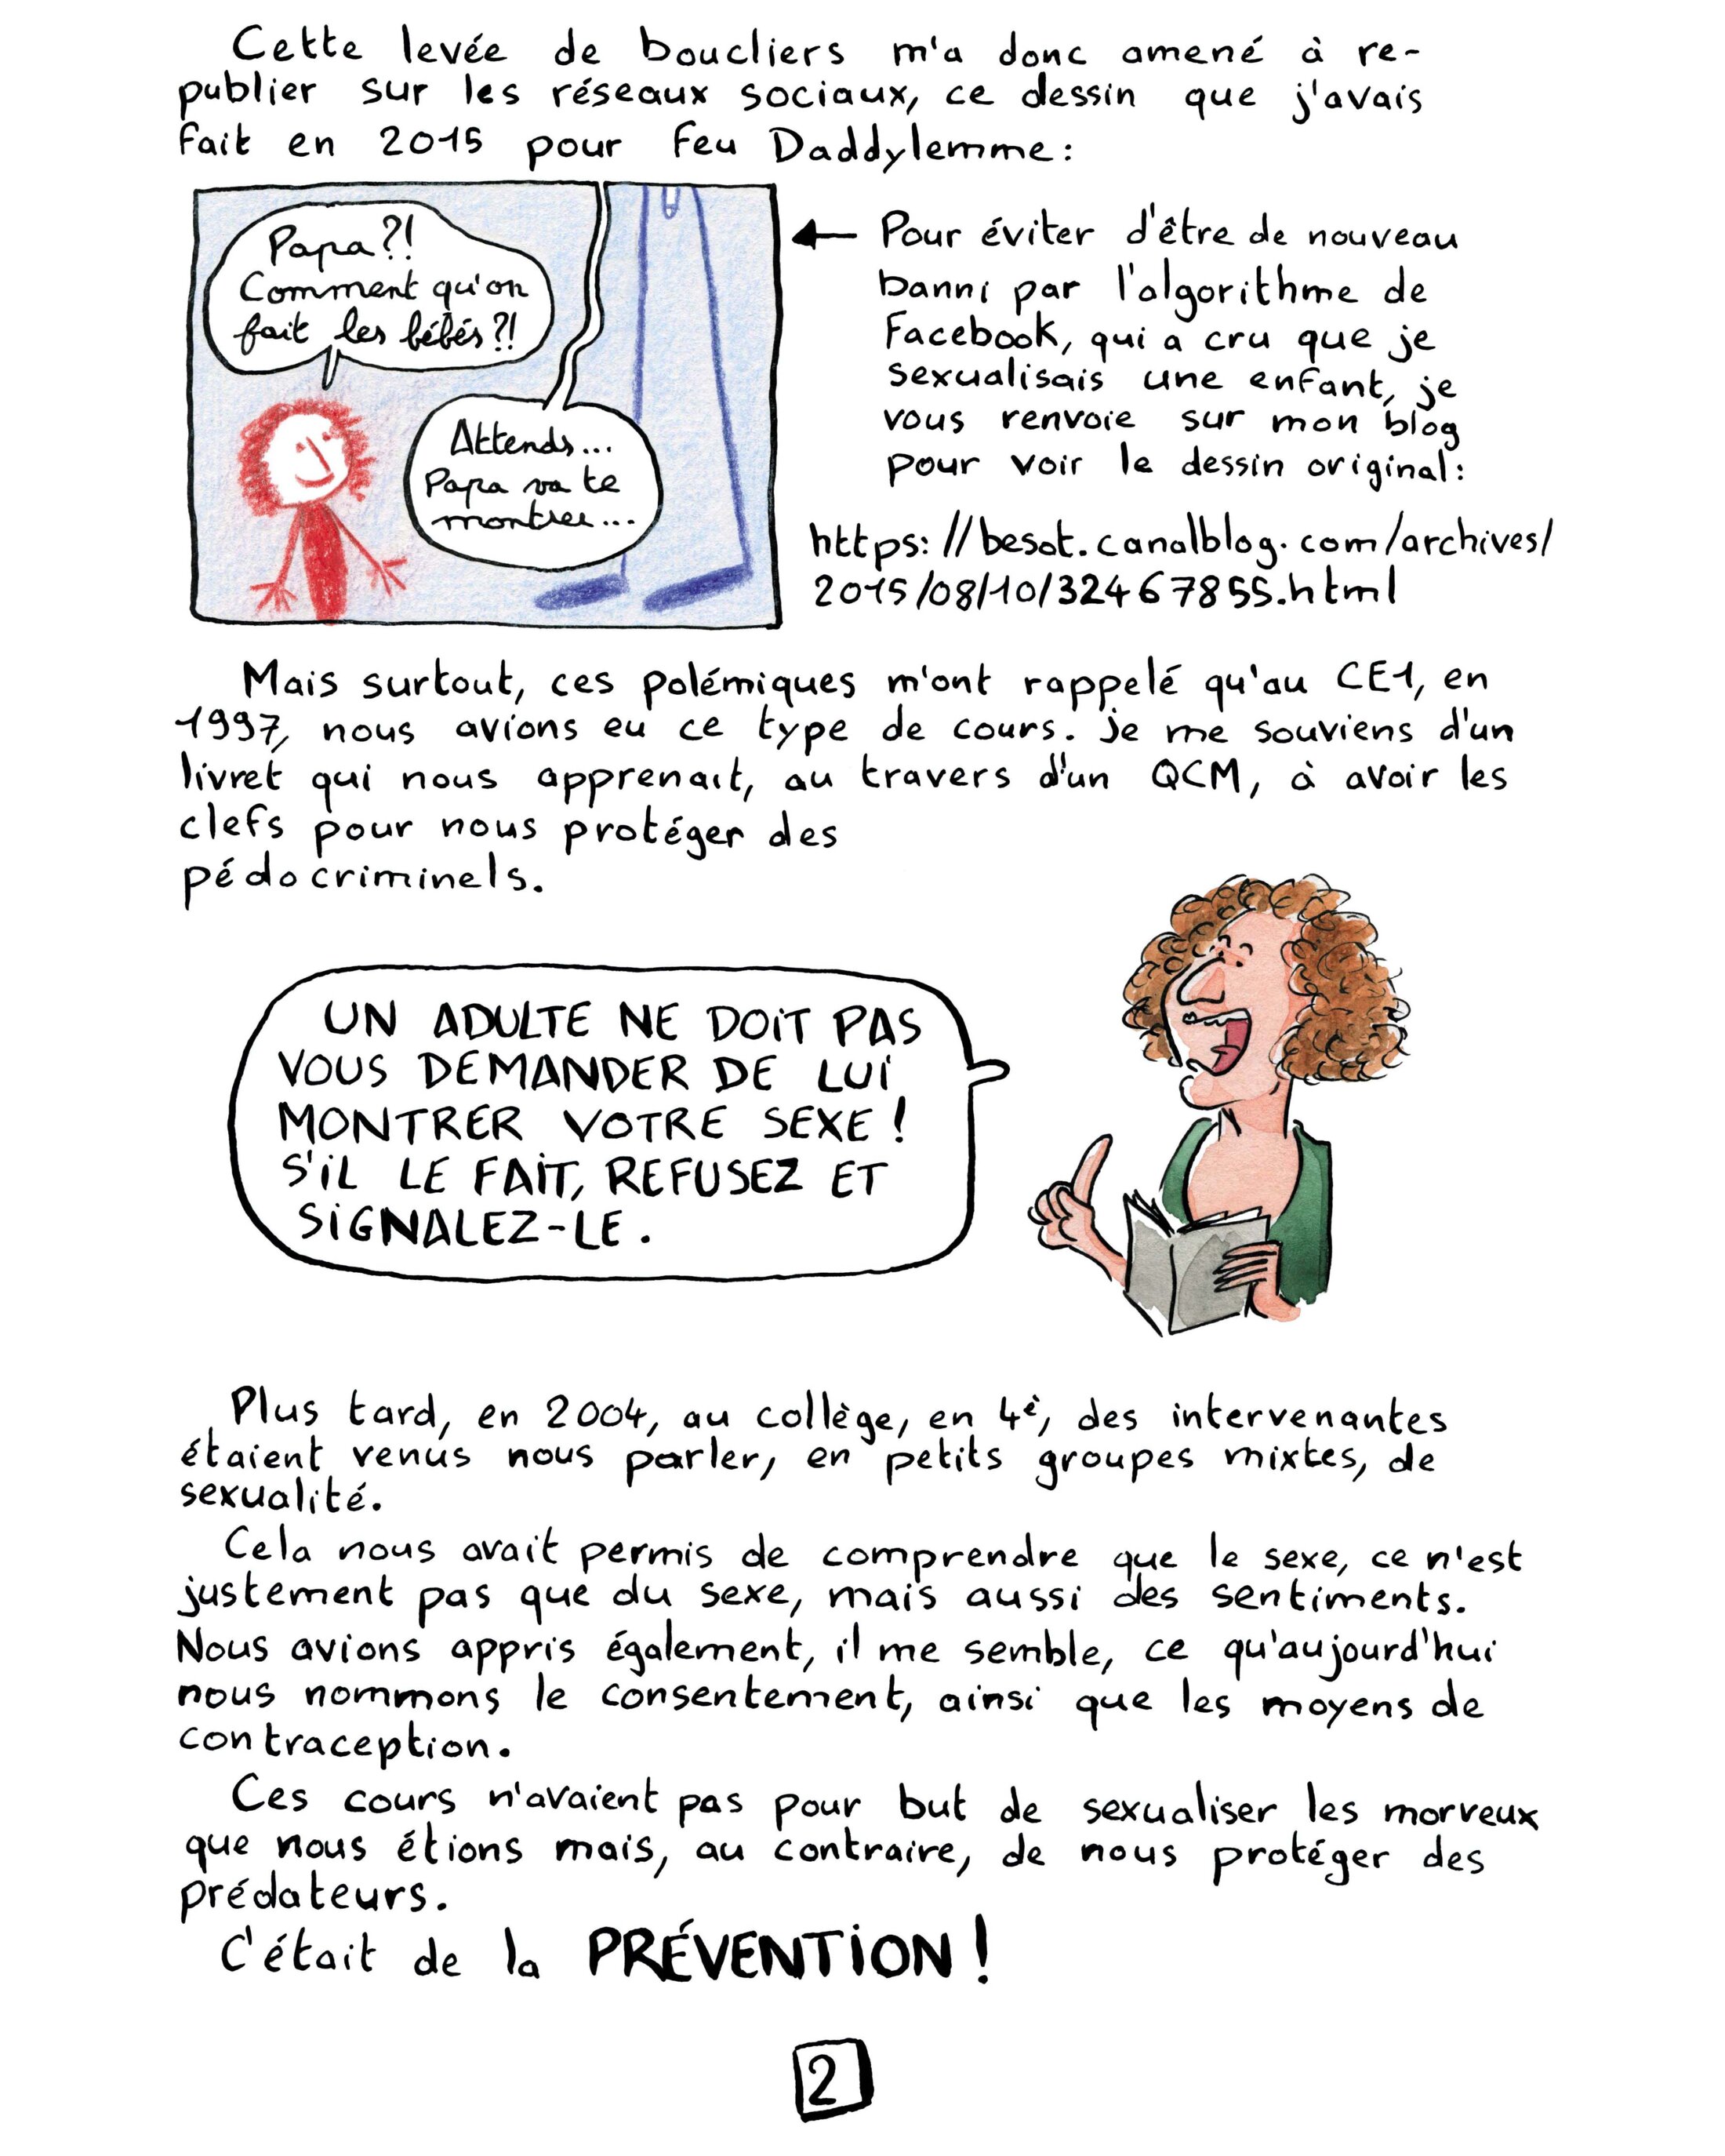 Cette levée de boucliers m'a donc amené à re-
publier sur les réseaux sociaux, ce dessin que j'avais
fait en 2015 pour feu Daddylemme :
Papa ?!
Comment qu'on
fait les bébés ?!
Attends...
Papa va te
montrer...
← Pour éviter d'être de nouveau
banni par l'algorithme de
Facebook, qui a cru que je
sexualisais une enfant, je
vous renvoie sur mon blog
pour voir le dessin original :
https://besot.canalblog.com/archives/
2015/08/10/32467855.html
Mais surtout, ces polémiques m'ont rappelé qu'au CE1, en
1997, nous avions eu ce type de cours. je me souviens d'un
livret qui nous apprenait, au travers d'un QCM, à avoir les
clefs pour nous protéger des
pédocriminels.
UN ADULTE NE DOIT PAS
VOUS DEMANDER DE LUI
MONTRER VOTRE SEXE !
S'IL LE FAIT, REFUSEZ ET
SIGNALEZ-LE.
Plus tard, en 2004, au collège, en 4è, des intervenantes
étaient venus nous parler, en petits groupes mixtes, de
sexualité.
Cela nous avait permis de comprendre que le sexe, ce n'est
justement pas que du sexe, mais aussi des sentiments.
Nous avions appris également, il me semble, ce qu'aujourd'hui
nous nommons le consentement, ainsi que les moyens de
contraception.
Ces cours n'avaient pas pour but de sexualiser les morveux
que nous étions mais, au contraire, de nous protéger des
prédateurs.
C'était de la PRÉVENTION !
2